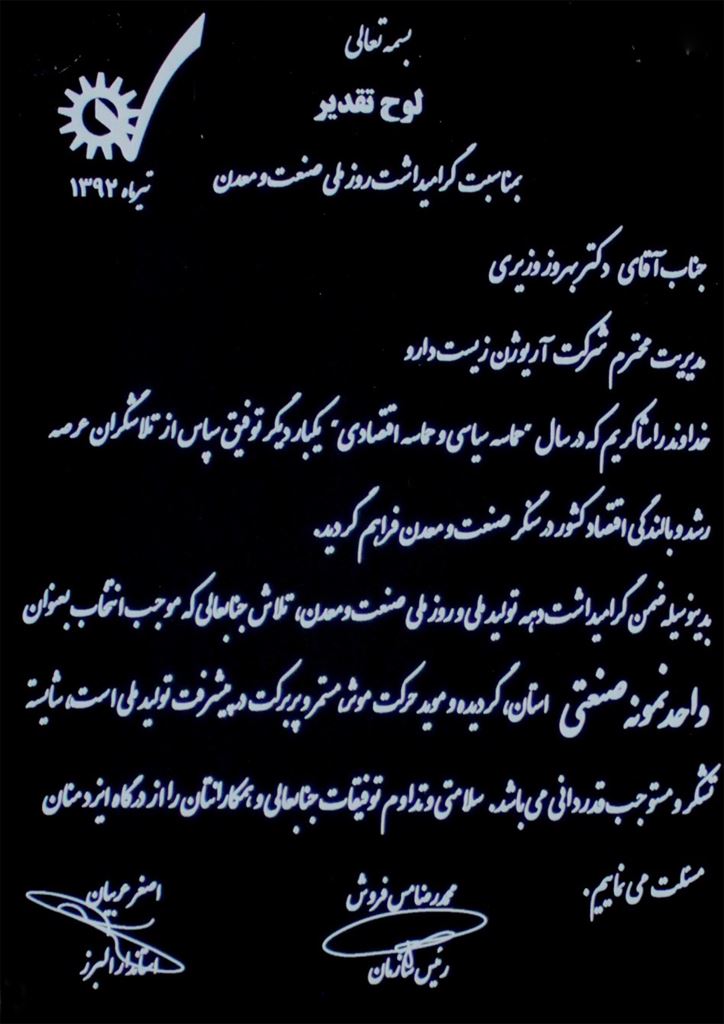 بسمه تعالی
لوح تقدیر
بمناسبت گرامیداشت روز ملی صنعت و معدن
تیرماه ۱۳۹۲
جناب آقای دکتر بهروز وزیری
مدیریت محترم شرکت آریوژن زیست دارو
خداوند را شاکریم که در سال "حماسه سیاسی و حماسه اقتصادی" یکبار دیگر توفیق سپاس از تلاشگران عرصه
رشد و بالندگی اقتصاد کشور در سنگر صنعت و معدن فراهم گردید.
بدینوسیله ضمن گرامیداشت دهه تولید ملی و روز ملی صنعت و معدن، تلاش جنابعالی که موجب انتخاب بعنوان
واحد نمونه صنعتی استان، گردیده و موید حرکت موثر، مستمر و پر برکت در پیشرفت تولید ملی است، شایسته
تشکر و مستوجب قدردانی می باشد. سلامتی و تداوم توفیقات جنابعالی و همکارانتان را از درگاه ایزد منان
مسئلت می نماییم.
محمدرضا مس فروش
رئیس سازمان
اصغر عربیان
استاندار البرز